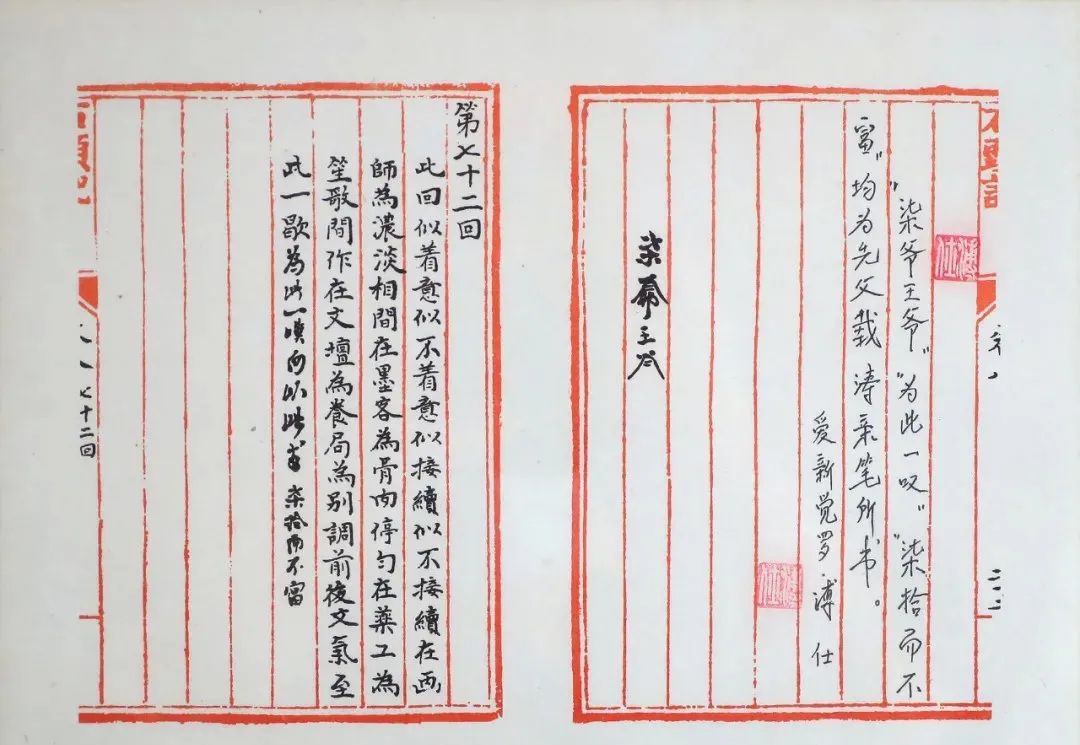 石頭記
溥仕
“柒爷王爷”“为此一叹”“柒拾而不
富”均为先父载涛亲笔所书。
爱新觉罗溥仕
溥仕
柒爺王爺
第七十二回
此回似着意似不着意似接續似不接續在画
師為濃淡相間在墨客為骨肉停勻在樂工為
笙歌間作在文壇為養局為別調前後文氣至
此一歇為此一嘆 柒拾而不富
石頭記
七十二回